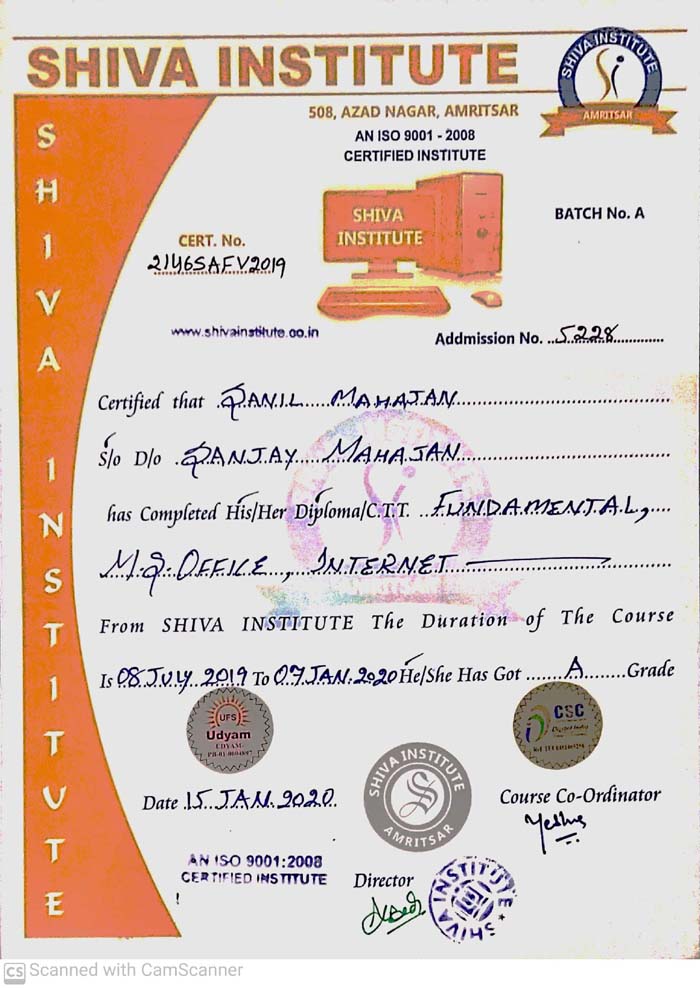 SHIVA INSTITUTE
SHIVA INSTITUTE
Si
AMRITSAR
508, AZAD NAGAR, AMRITSAR
AN ISO 9001 - 2008
CERTIFIED INSTITUTE
SHIVA INSTITUTE
SHIVA
INSTITUTE
BATCH No. A
CERT. No.
2146SAFV2019
www.shivainstitute.co.in
Addmission No. ..5228.............
Certified that .SANIL.....MAHAJAN.............
S/o D/o .SANJAY....MAHAJAN.............
has Completed His/Her Diploma/C.T.T. ..FUNDAMENTAL,....
M.S. OFFICE, INTERNET
From SHIVA INSTITUTE The Duration of The Course
Is 08 JULY 2019 To 07 JAN. 2020 He/She Has Got .......A.......Grade
UFS
Udyam
UDYAM-
CSC
Digital India
SHIVA INSTITUTE
S
AMRITSAR
Date .15 JAN. 2020.
Course Co-Ordinator
AN ISO 9001:2008
CERTIFIED INSTITUTE
Director
SHIVA INSTITUTE
CS Scanned with CamScanner